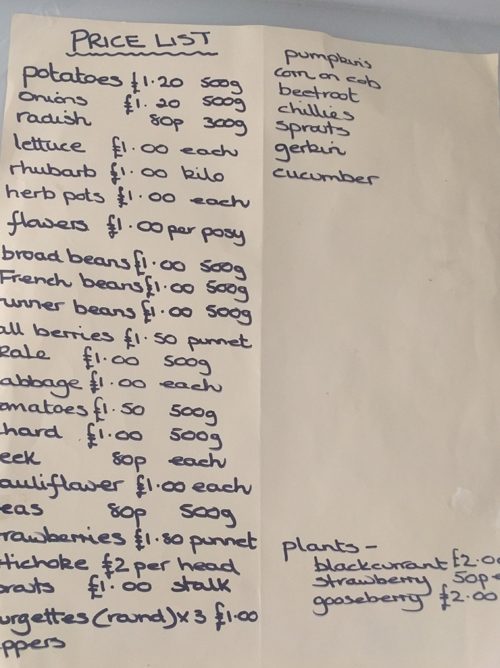 PRICE LIST
potatoes £1.20 500g
onions £1.20 500g
radish 80p 300g
lettuce £1.00 each
rhubarb £1.00 kilo
herb pots £1.00 each
flowers £1.00 per posy
broad beans £1.00 500g
French beans £1.00 500g
unner beans £1.00 500g
all berries £1.50 punnet
kale £1.00 500g
abbage £1.00 each
omatoes £1.50 500g
hard £1.00 500g
eek 80p each
auliflower £1.00 each
eas 80p 500g
rawberries £1.80 punnet
tichoke £2 per head
routs £1.00 stalk
urgettes (round) x 3 £1.00
ppers
pumpkins
corn on cob
beetroot
chillies
sprouts
gerkin
cucumber
plants -
blackcurrant £2.00
strawberry 50p
gooseberry £2.00